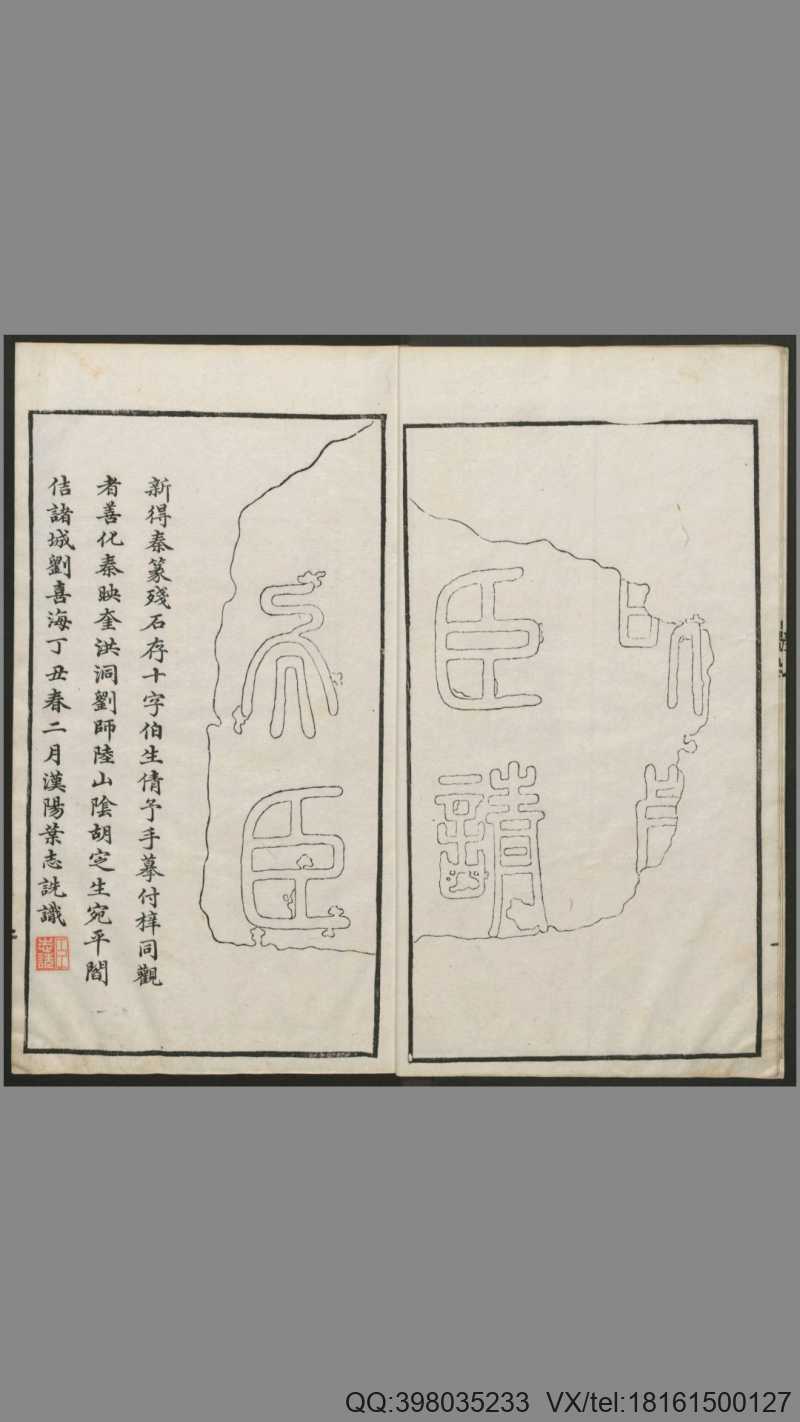 臣請
矣臣
新得秦篆殘石存十字伯生倩予手摹付梓同觀
者善化秦映奎洪洞劉師陸山陰胡㝎生宛平閻
佶諸城劉喜海丁丑春二月漢陽葉志詵識
QQ:398035233 VX/tel:18161500127